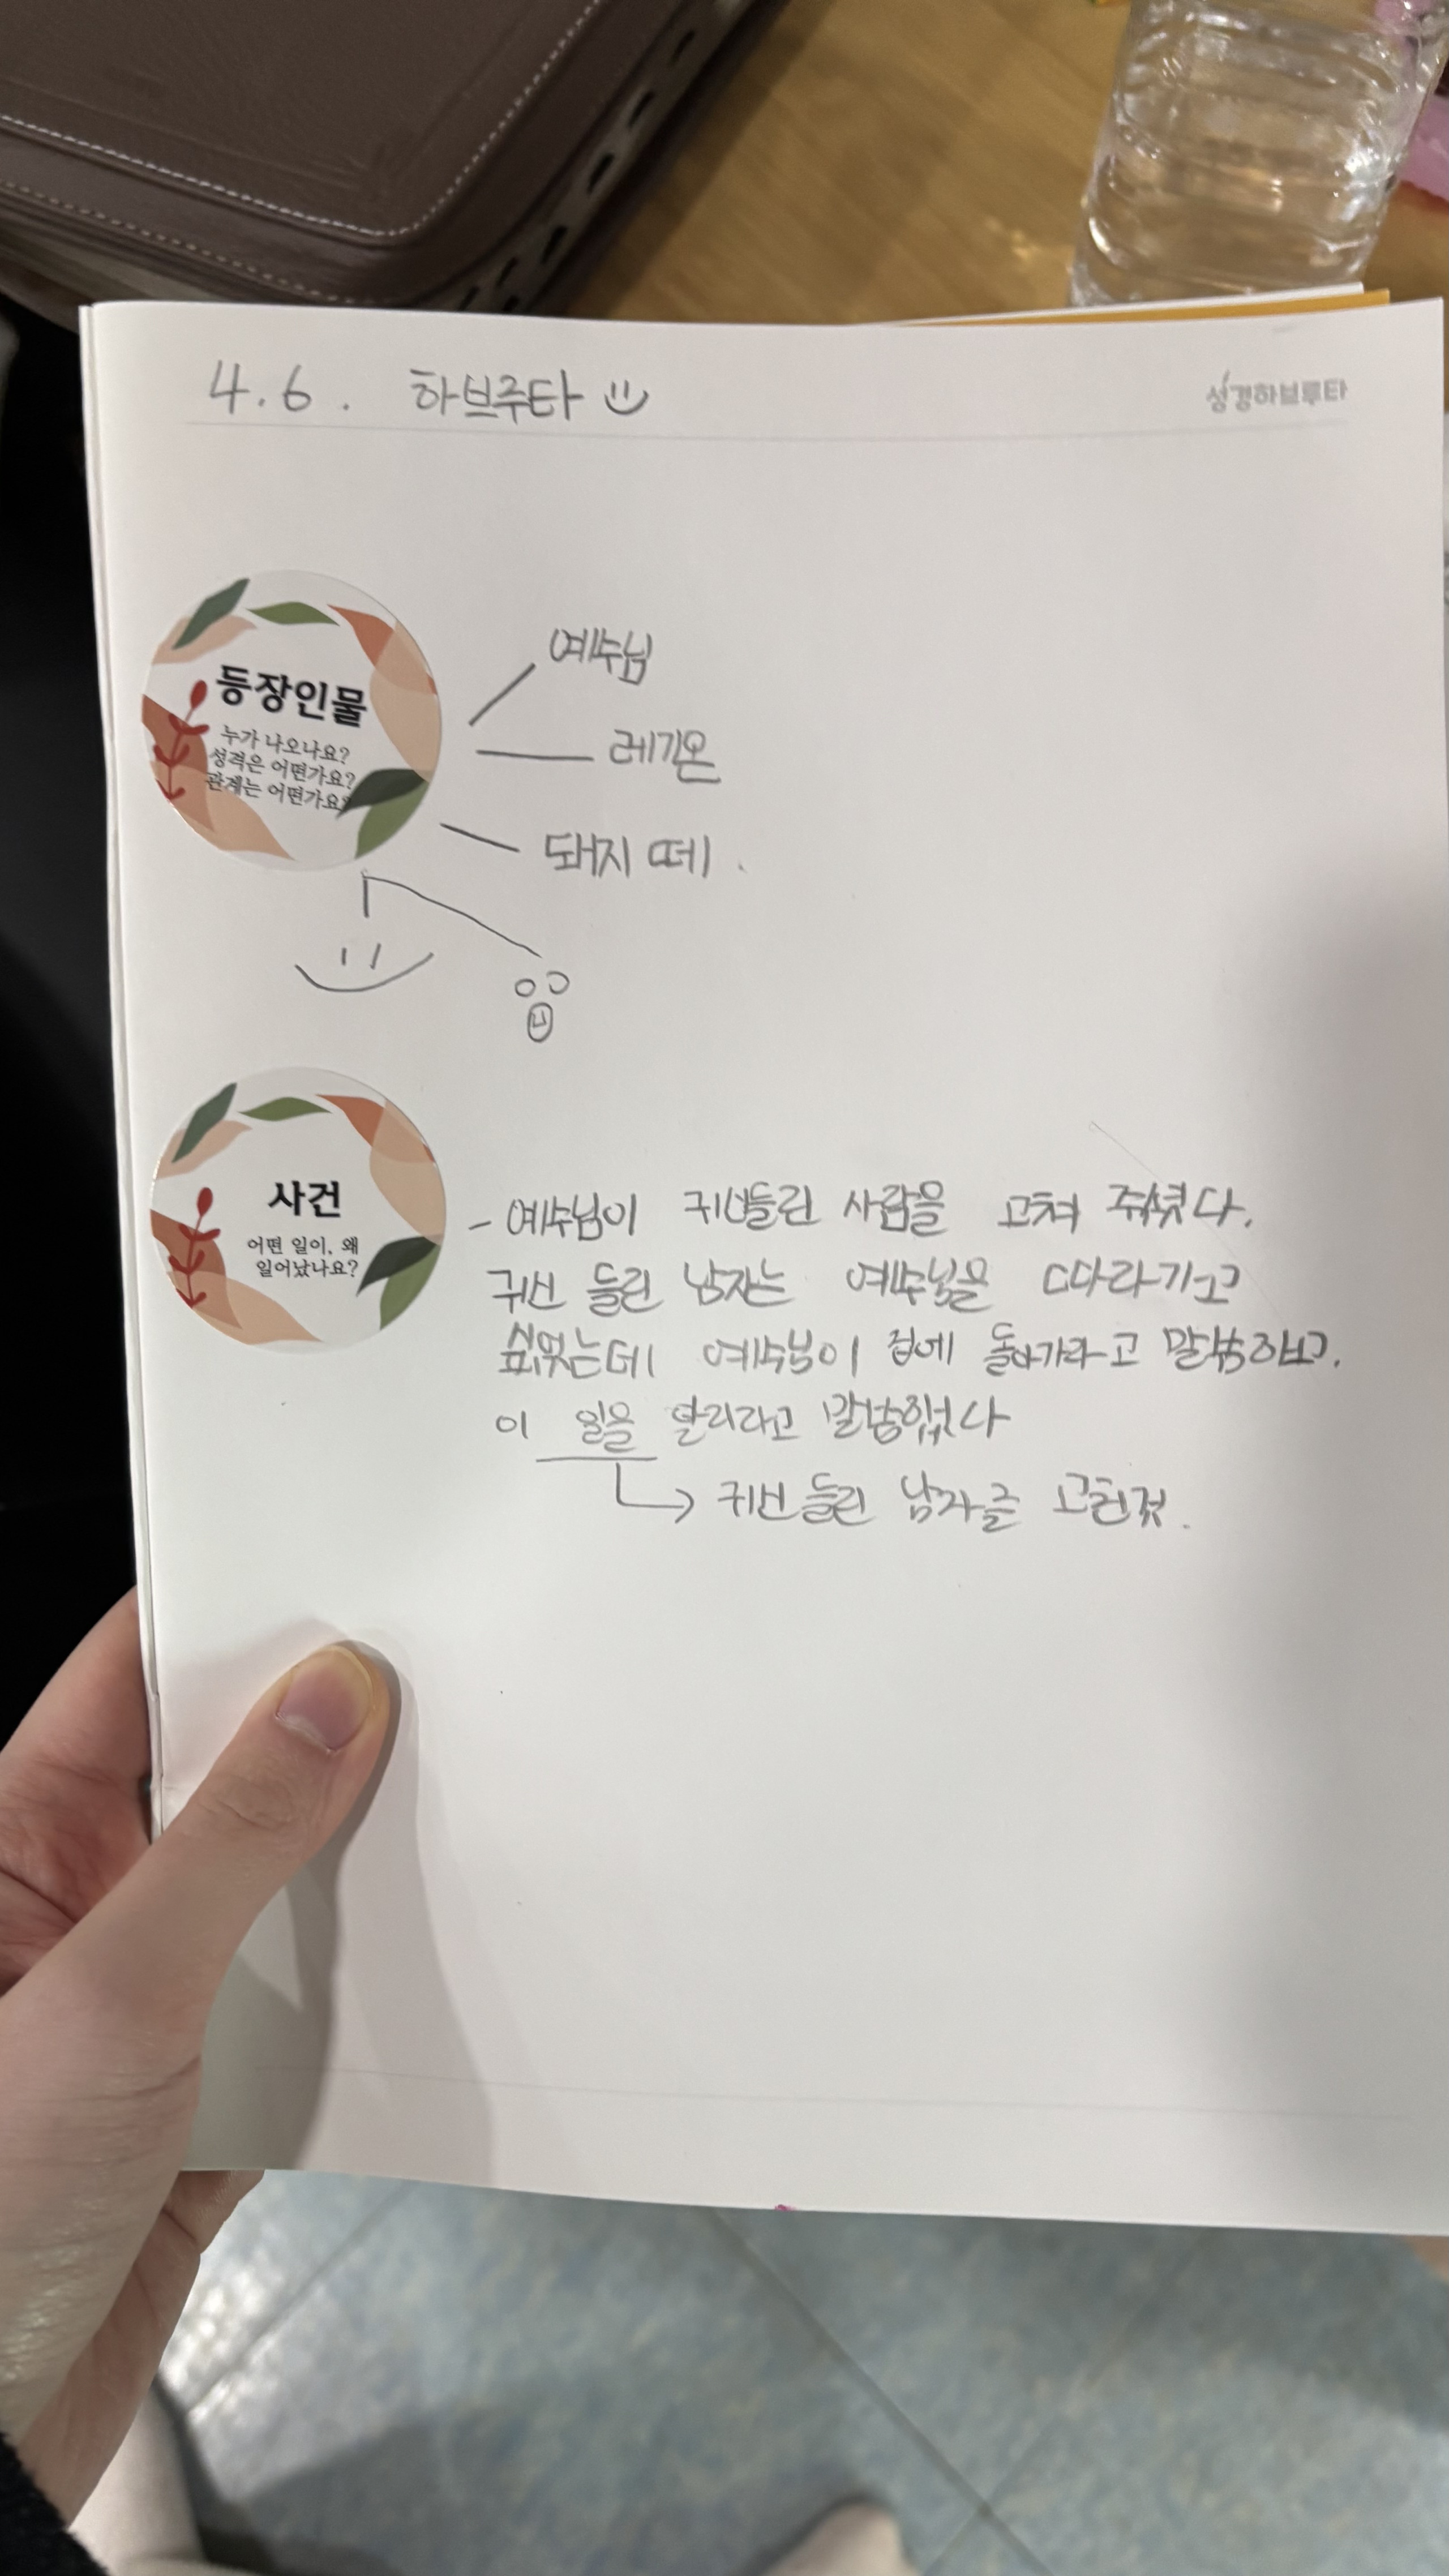 4.6. 하브루타
성경하브루타
등장인물
누가 나오나요?
성격은 어떤가요?
관계는 어떤가요?
예수님
레기온
돼지 떼.
사건
어떤 일이, 왜
일어났나요?
- 예수님이 귀신들린 사람을 고쳐 주셨다.
귀신 들린 남자는 예수님을 따라가고
싶었는데 예수님이 집에 돌아가라고 말씀하시고.
이 일을 알리라고 말씀하셨다
→ 귀신 들린 남자를 고친것.